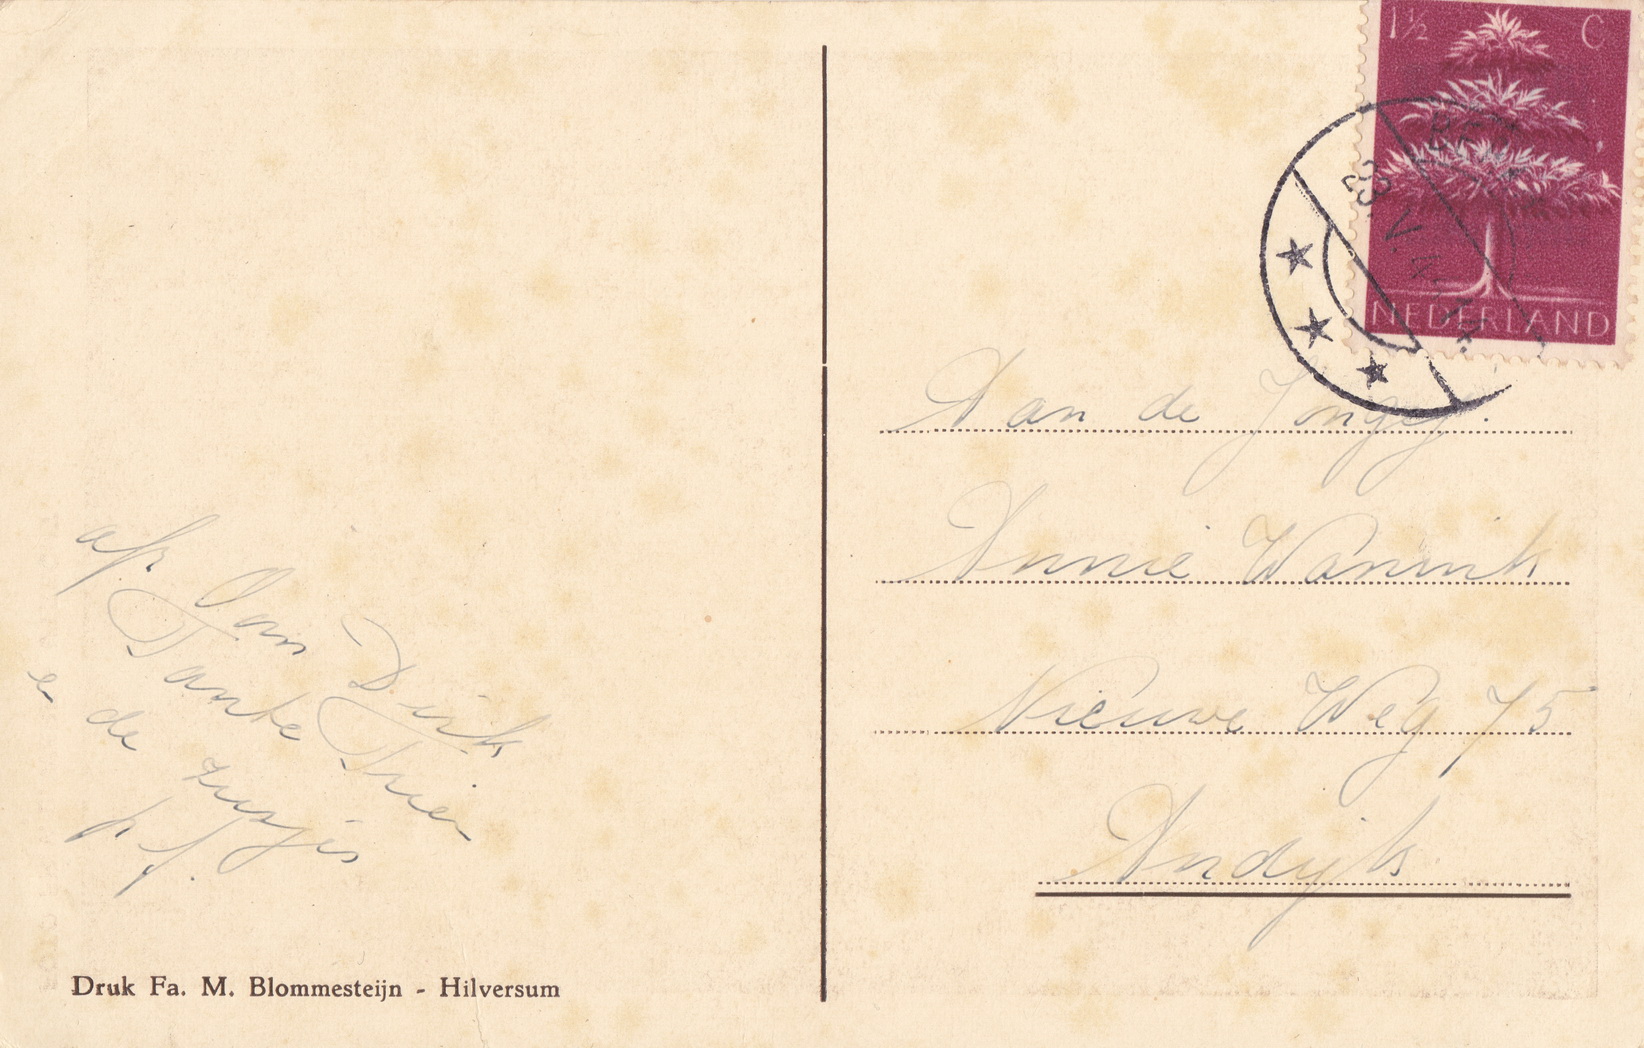 1½ C
NEDERLAND
Aan de Jonge j.
Annie Wannik
Nieuwe Weg 75
Andijk
Oom Dirk
Tante Trien
en de zusjes
Druk Fa. M. Blommesteijn - Hilversum